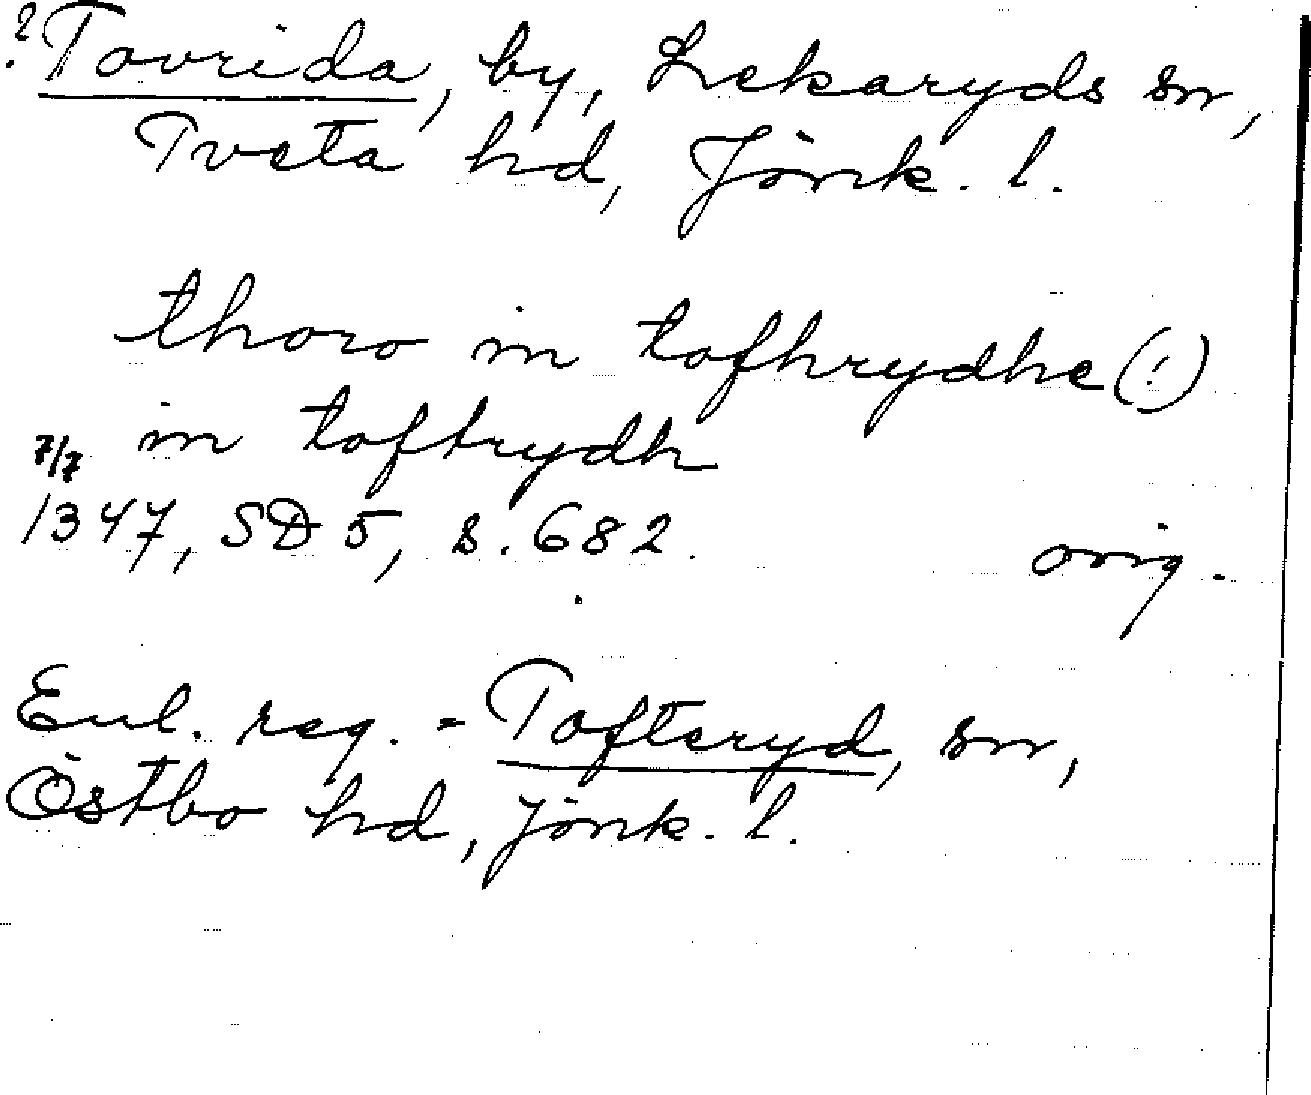 ? Tovrida, by, Lekaryds sn,
Tveta hd, Jönk. l.
thoro in tofhrydhe (!)
in toftrydh
7/7
1347, SD 5, s. 682.
orig.
Enl. reg. = Tofteryd, sn,
Östbo hd, Jönk. l.